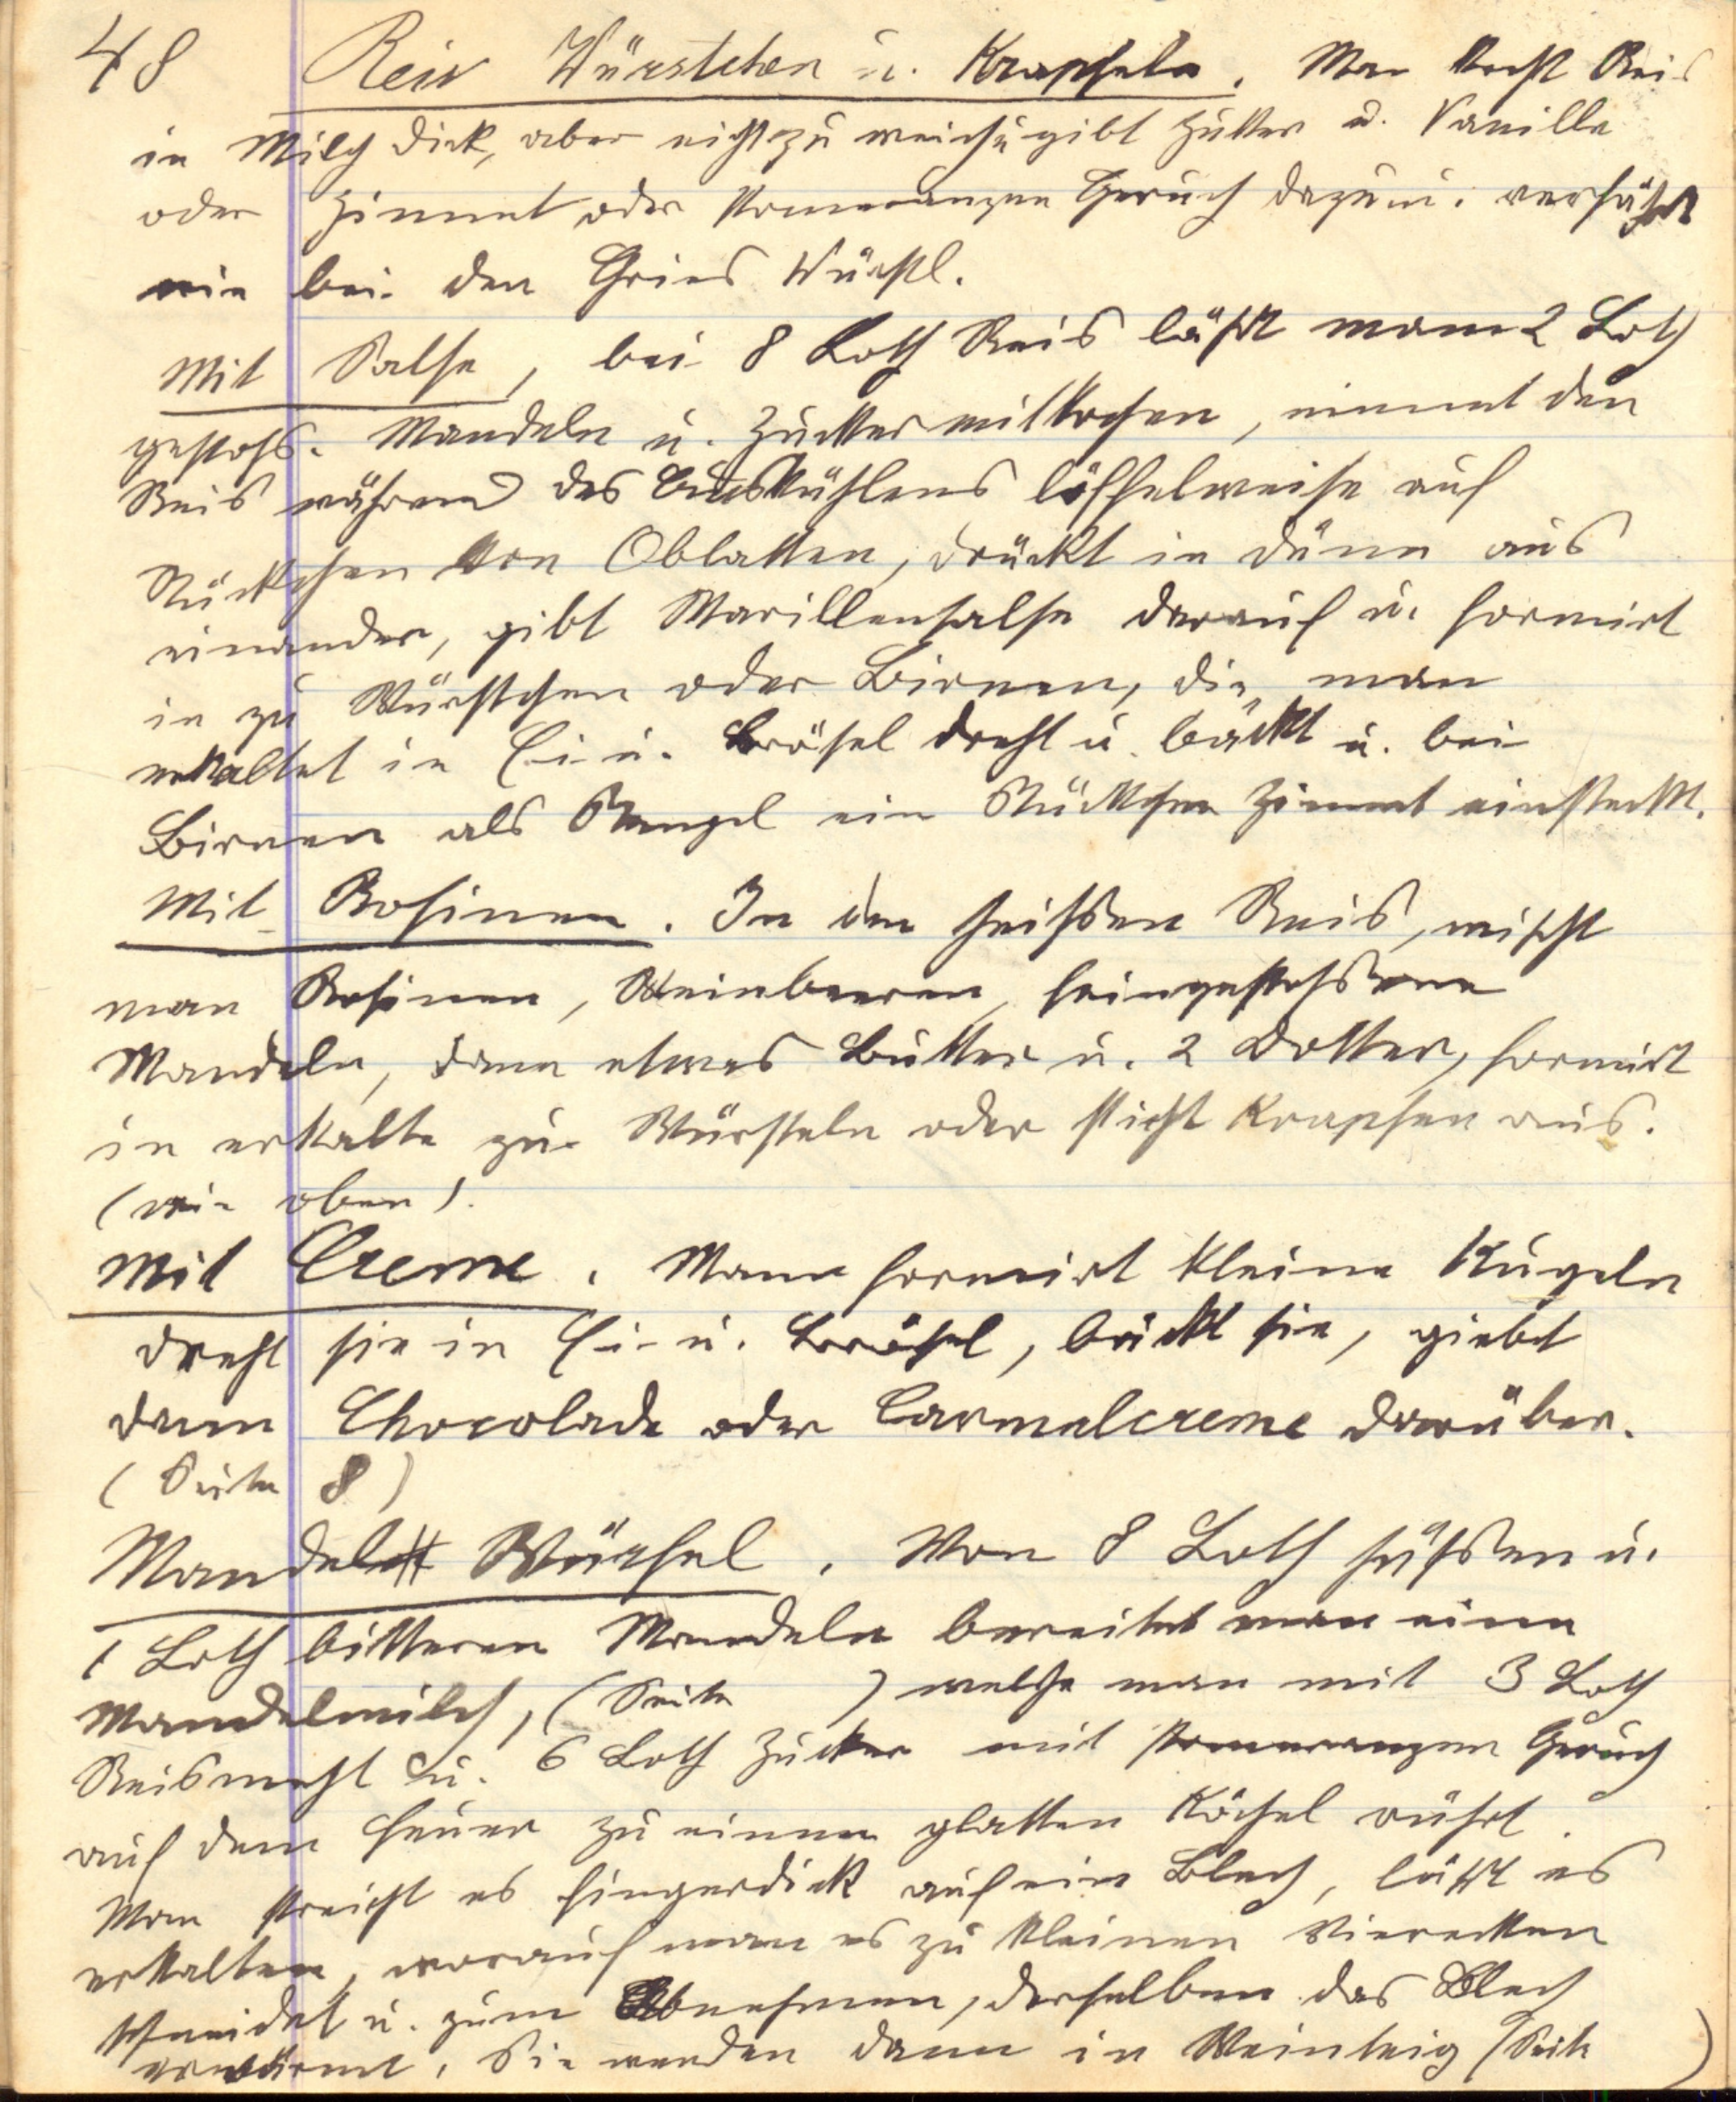 48 Reis Würstchen u. Krapfeln. Man kocht Reis
in Milch dick, aber nicht zu weich u gibt Zukker u. Vanille
oder Zimmt oder Pomeranzen Geruch dazu u. verfährt
wie bei den Gries Würstl.
Mit Salse, bei 8 Loth Reis läßt man 2 Loth
gestoß. Mandeln u. Zukker mitkochen, nimmt den
Reis während des Auskühlens löffelweise auf
Stückchen von Oblatten, drückt in dünn aus
einander, gibt Marillensalse darauf u. formirt
in zu Würstchen oder Birnen, die man
erkaltet in Ei u. Brösel dreht u. bäckt u. bei
Birnen als Stengel ein Stückchen Zimmt einsteckt.
Mit Rosinen. In den heißen Reis, mischt
man Rosinen, Weinbeeren, feingestoßene
Mandeln, dann etwas Butter u. 2 Dotter, formirt
in erkalte zu Würsteln oder sticht Krapfen aus.
(wie oben).
Mit Creme. Mann formirt kleine Kugeln
dreht sie in Ei u. Brösel, bäckt sie, giebt
dann Chocolade oder Carmelcreme darüber.
(Seite 8)
Mandel Würfel. Von 8 Loth süßen u.
1 Loth bitteren Mandeln bereitet man eine
Mandelmilch, (Seite ) welche man mit 3 Loth
Reismehl u. 6 Loth Zucker mit Pomeranzen Geruch
auf dem Feuer zu einem glatten Köchel rührt.
Man streicht es fingerdick auf ein Blech, läßt es
erkalten, worauf man es zu kleinen Vierecken
schneidet u. zum Abnehmen, derselben das Blech
erwärmt. Sie werden dann in Weinteig (Seite )